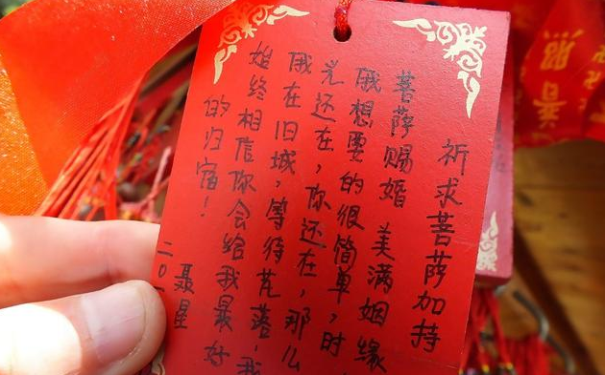 祈求菩萨加持
菩萨赐婚 美满姻缘
俄想要的很简单，时
光还在，你还在，那么
俄在旧城，等待花落，我
始终相信你会给我最好
的归宿！
聂星
二〇